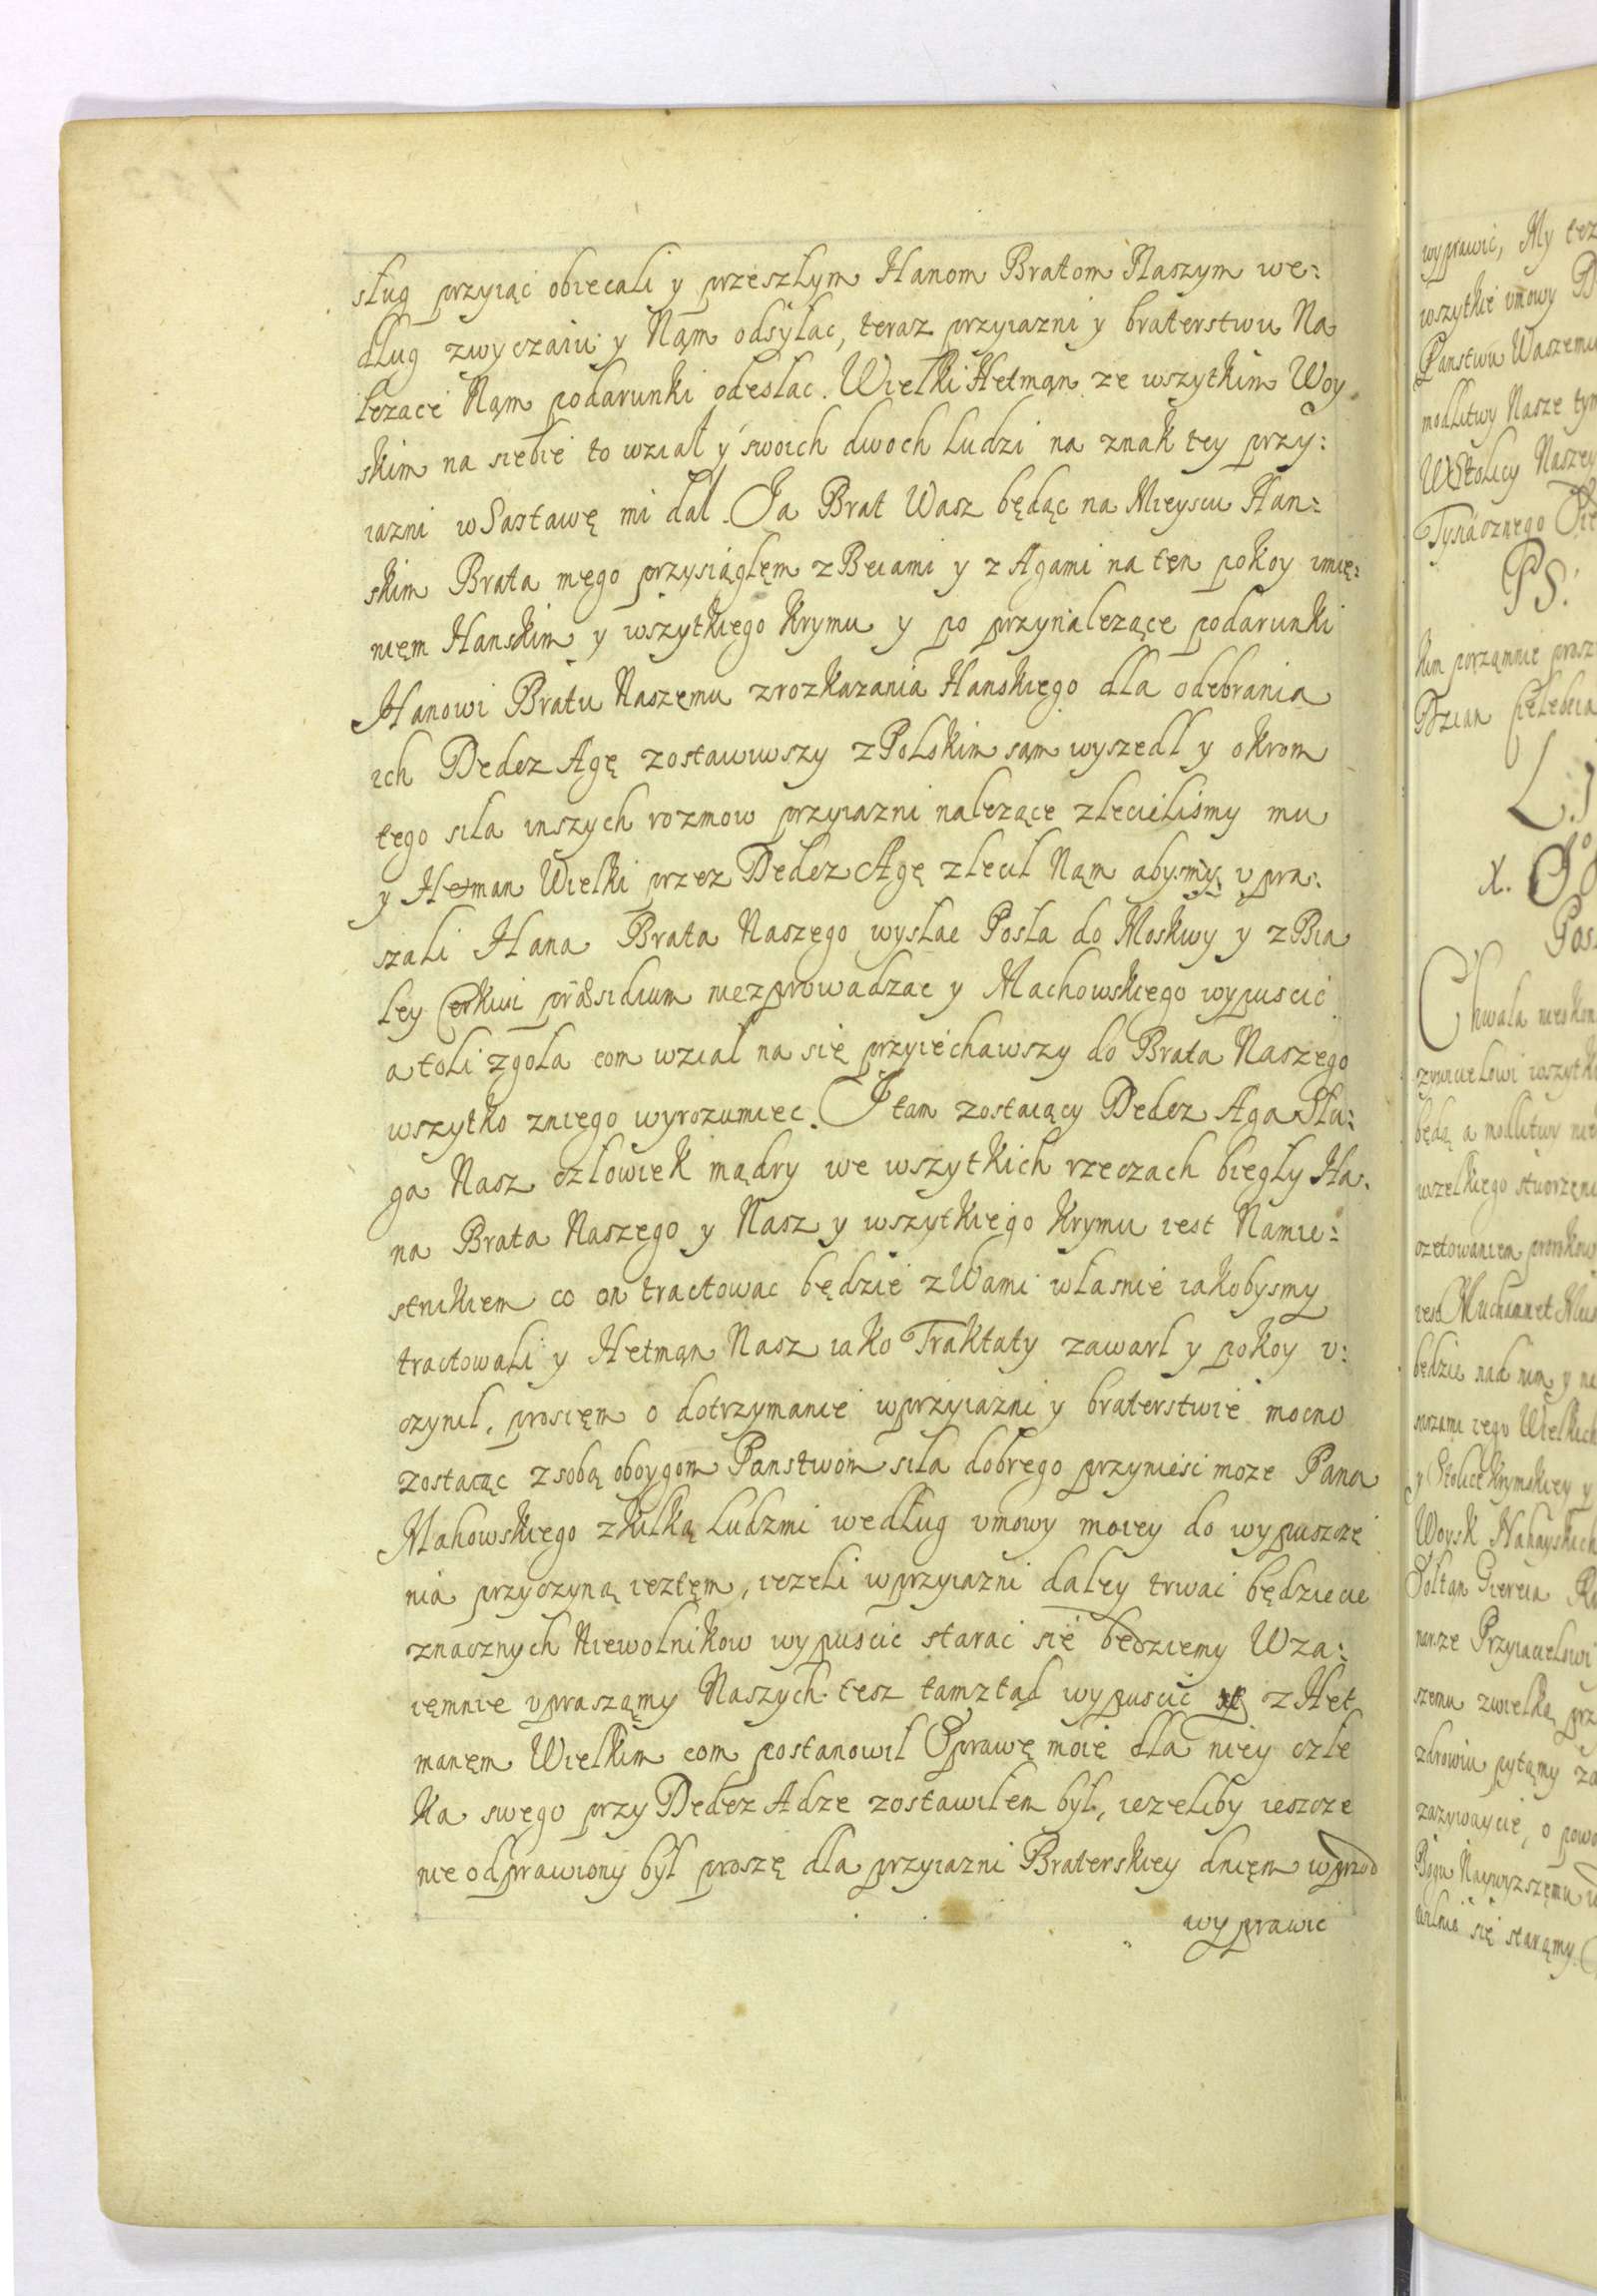 sług przyiąc obiecali y przeszłym Hanom Bratom Naszym we:
dlug zwyczaiu y Nąm odsyłac, teraz przyiazni y braterstwu Na
lezace Nąm podarunki odesłac. Wielki Hetmąn ze wszytkim Woy
skim na siebie to wział y swoich dwoch ludzi na znak tey przy:
iazni w Sastawę mi dał. Ja Brat Wasz będąc na Mieyscu Han:
skim Brata mego przysiągłęm z Beiami y z Agami na tęn pokoy imię:
nięm Hanskim y wszytkiego Krymu y po przynalezące podarunki
Hanowi Bratu Naszęmu z rozkazania Hanskięgo dla odebrania
ich Dedez Agę zostawiwszy z Polskim sąm wyszedł y okrom
tego siła inszych rozmow przyiazni nalezące zleciliśmy mu
y Hetman Wielki przez Dedez Agę zlecił Nąm abysmy upra:
szali Hana Brata Naszęgo wysłac Posła do Moskwy y z Bia
łey Cerkwi præsidium niezprowadzac y Machowskięgo wypuscic
a toli zgoła com wział na się przyiechawszy do Brata Naszęgo
wszytko znięgo wyrozumiec. I tam zostaiący Dedez Aga Słu:
ga Nasz człowiek mądry we wszytkich rzeczach biegły Ha.
na Brata Naszęgo y Nasz y wszytkięgo Krymu iest Namie:
stnikiem co on tractowac będzie z Wami własnie iakobysmy
tractowali y Hetmąn Nasz iako Traktaty zawarł y pokoy u:
czynił, prosięm o dotrzymanie w przyiazni y braterstwie mocno
zostaiąc z sobą oboygom Panstwom siła dobrego przynieść moze Pana
Mahowskiego z kilką ludzmi według umowy moiey do wypuszcze
nia przyczyną iestęm, iezeli w przyiazni daley trwac będziecie
znacznych Niewolnikow wypuscic starac się będziemy Wza:
ięmnie uprasząmy Naszych tesz tamztąd wypuscic z Het
manęm Wielkim com postanowił Sprawę moię dla niey czle
ka swego przy Dedez Adze zostawiłem był, iezeliby ieszcze
nie odprawiony był proszę dla przyiazni Braterskiey dnięm wprzod
wyprawic
wyprawic, My tez
wszytkie umowy
Panstwu Waszemu
modlitwy Nasze tym
W Stolicy Naszey
PS.
kim prosz
L.
X.
Chwala nieskon
wszytk
będą a
wszelkiego stworzęni
iest
będzie nad nim y na
iego Wielkich
y Stolice Krymskiey y
Woysk Nahayskich
Sołtan Giereia
Przyiacielowi
szemu zwielką prz
zdrowiu pytąmy za
zazywaycie, o powo
Bogu Naywyzszęmu
się starąmy.